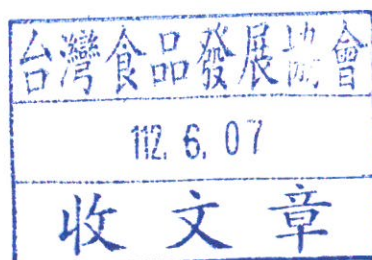 台灣食品發展協會
112. 6. 07
收文章